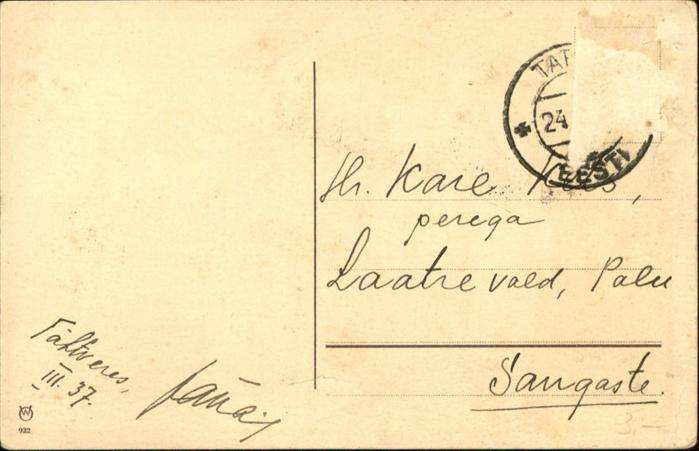 TAR
24
EESTI
Hr. Kare
perega
Laatre vald, Palu
Sangaste.
Tähtveres,
III. 37.
W
922
3.–